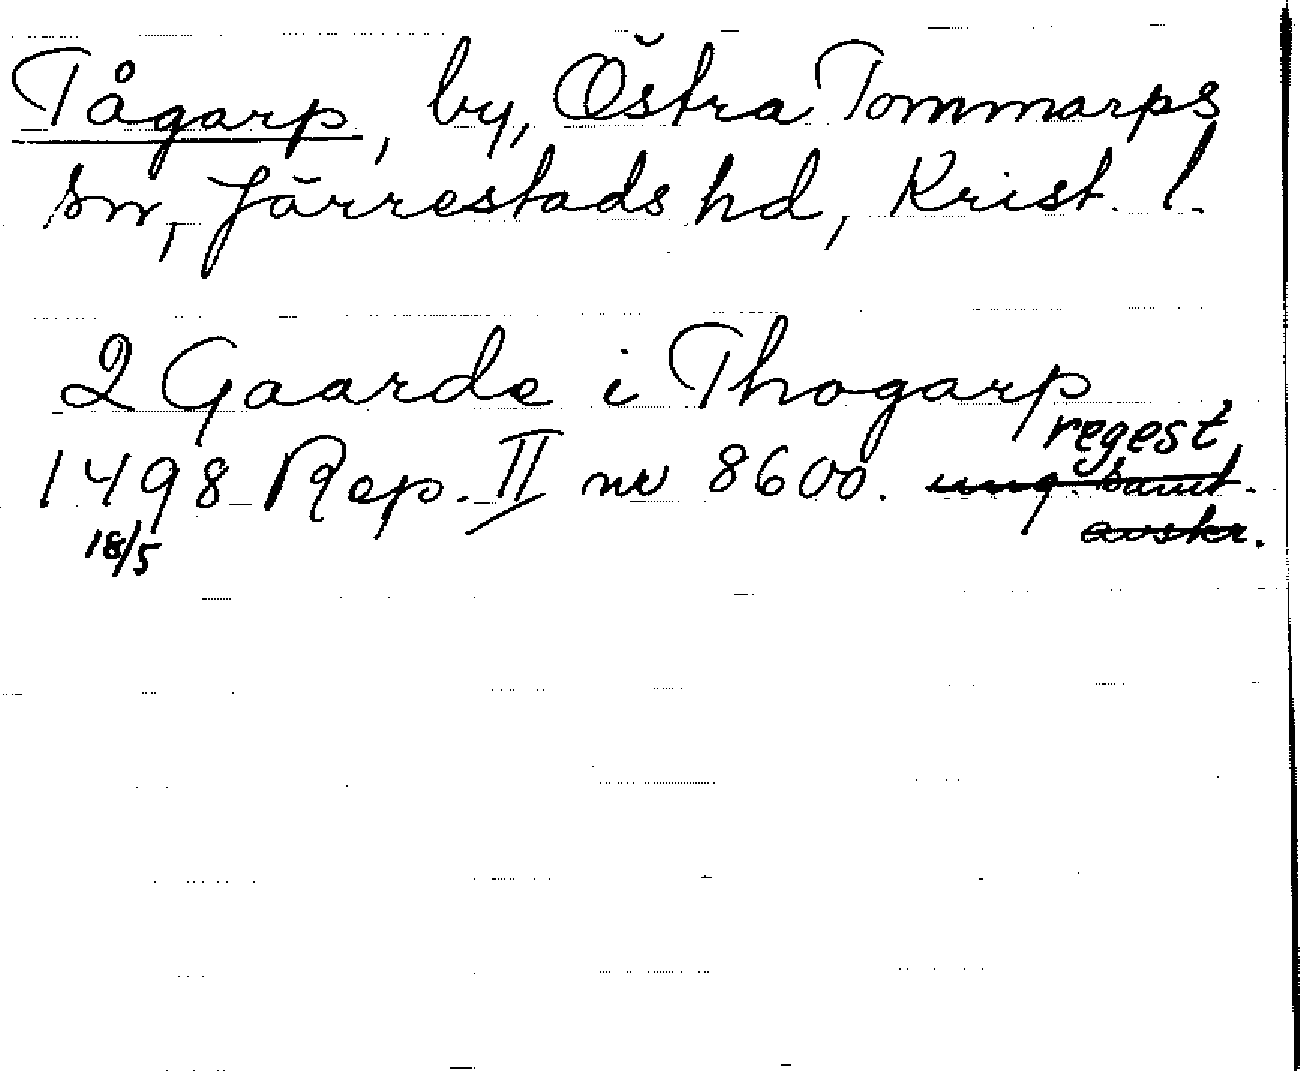 Tågarp, by, Östra Tommarps
sn, Järrestads hd, Krist. l.
2 Gaarde i Thogarp
regest
1498 Rep. II nr 8600. ung. samt.
18/5 avskr.